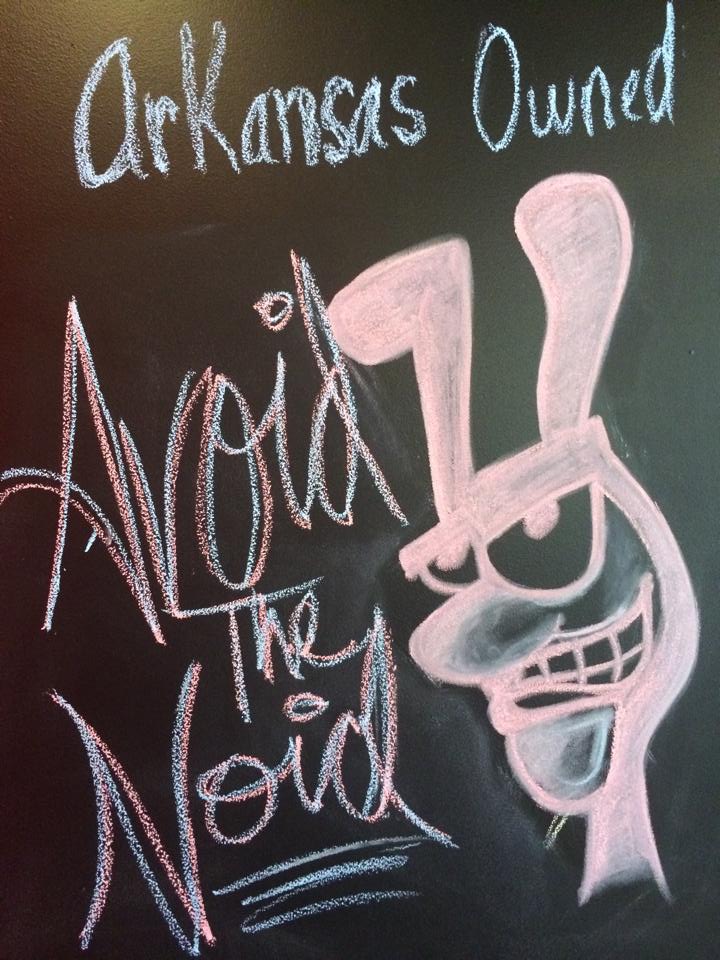 Arkansas Owned
Avoid
The
Noid